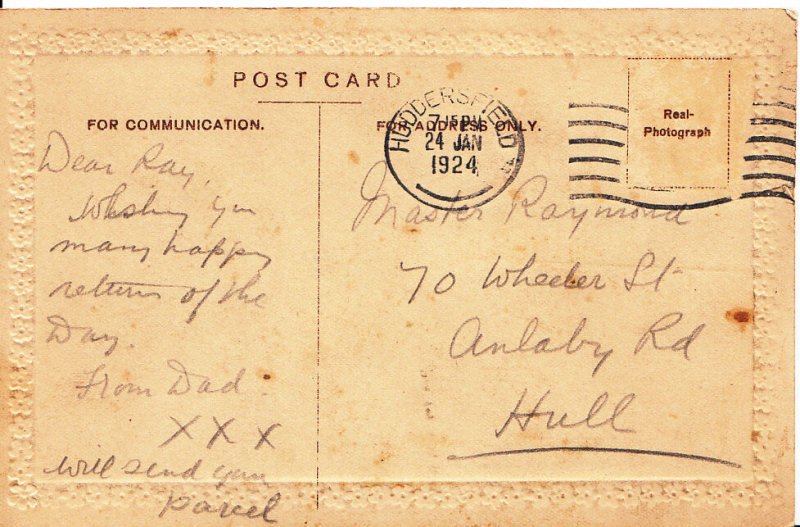 POST CARD
FOR COMMUNICATION.
Dear Ray,
Wishing you
many happy
returns of the
Day.
From Dad.
X X X
will send you
parcel
FOR ADDRESS ONLY.
HUDDERSFIELD
7 15 PM
24 JAN
1924
Real-
Photograph
Master Raymond
70 Wheeler St
Anlaby Rd
Hull